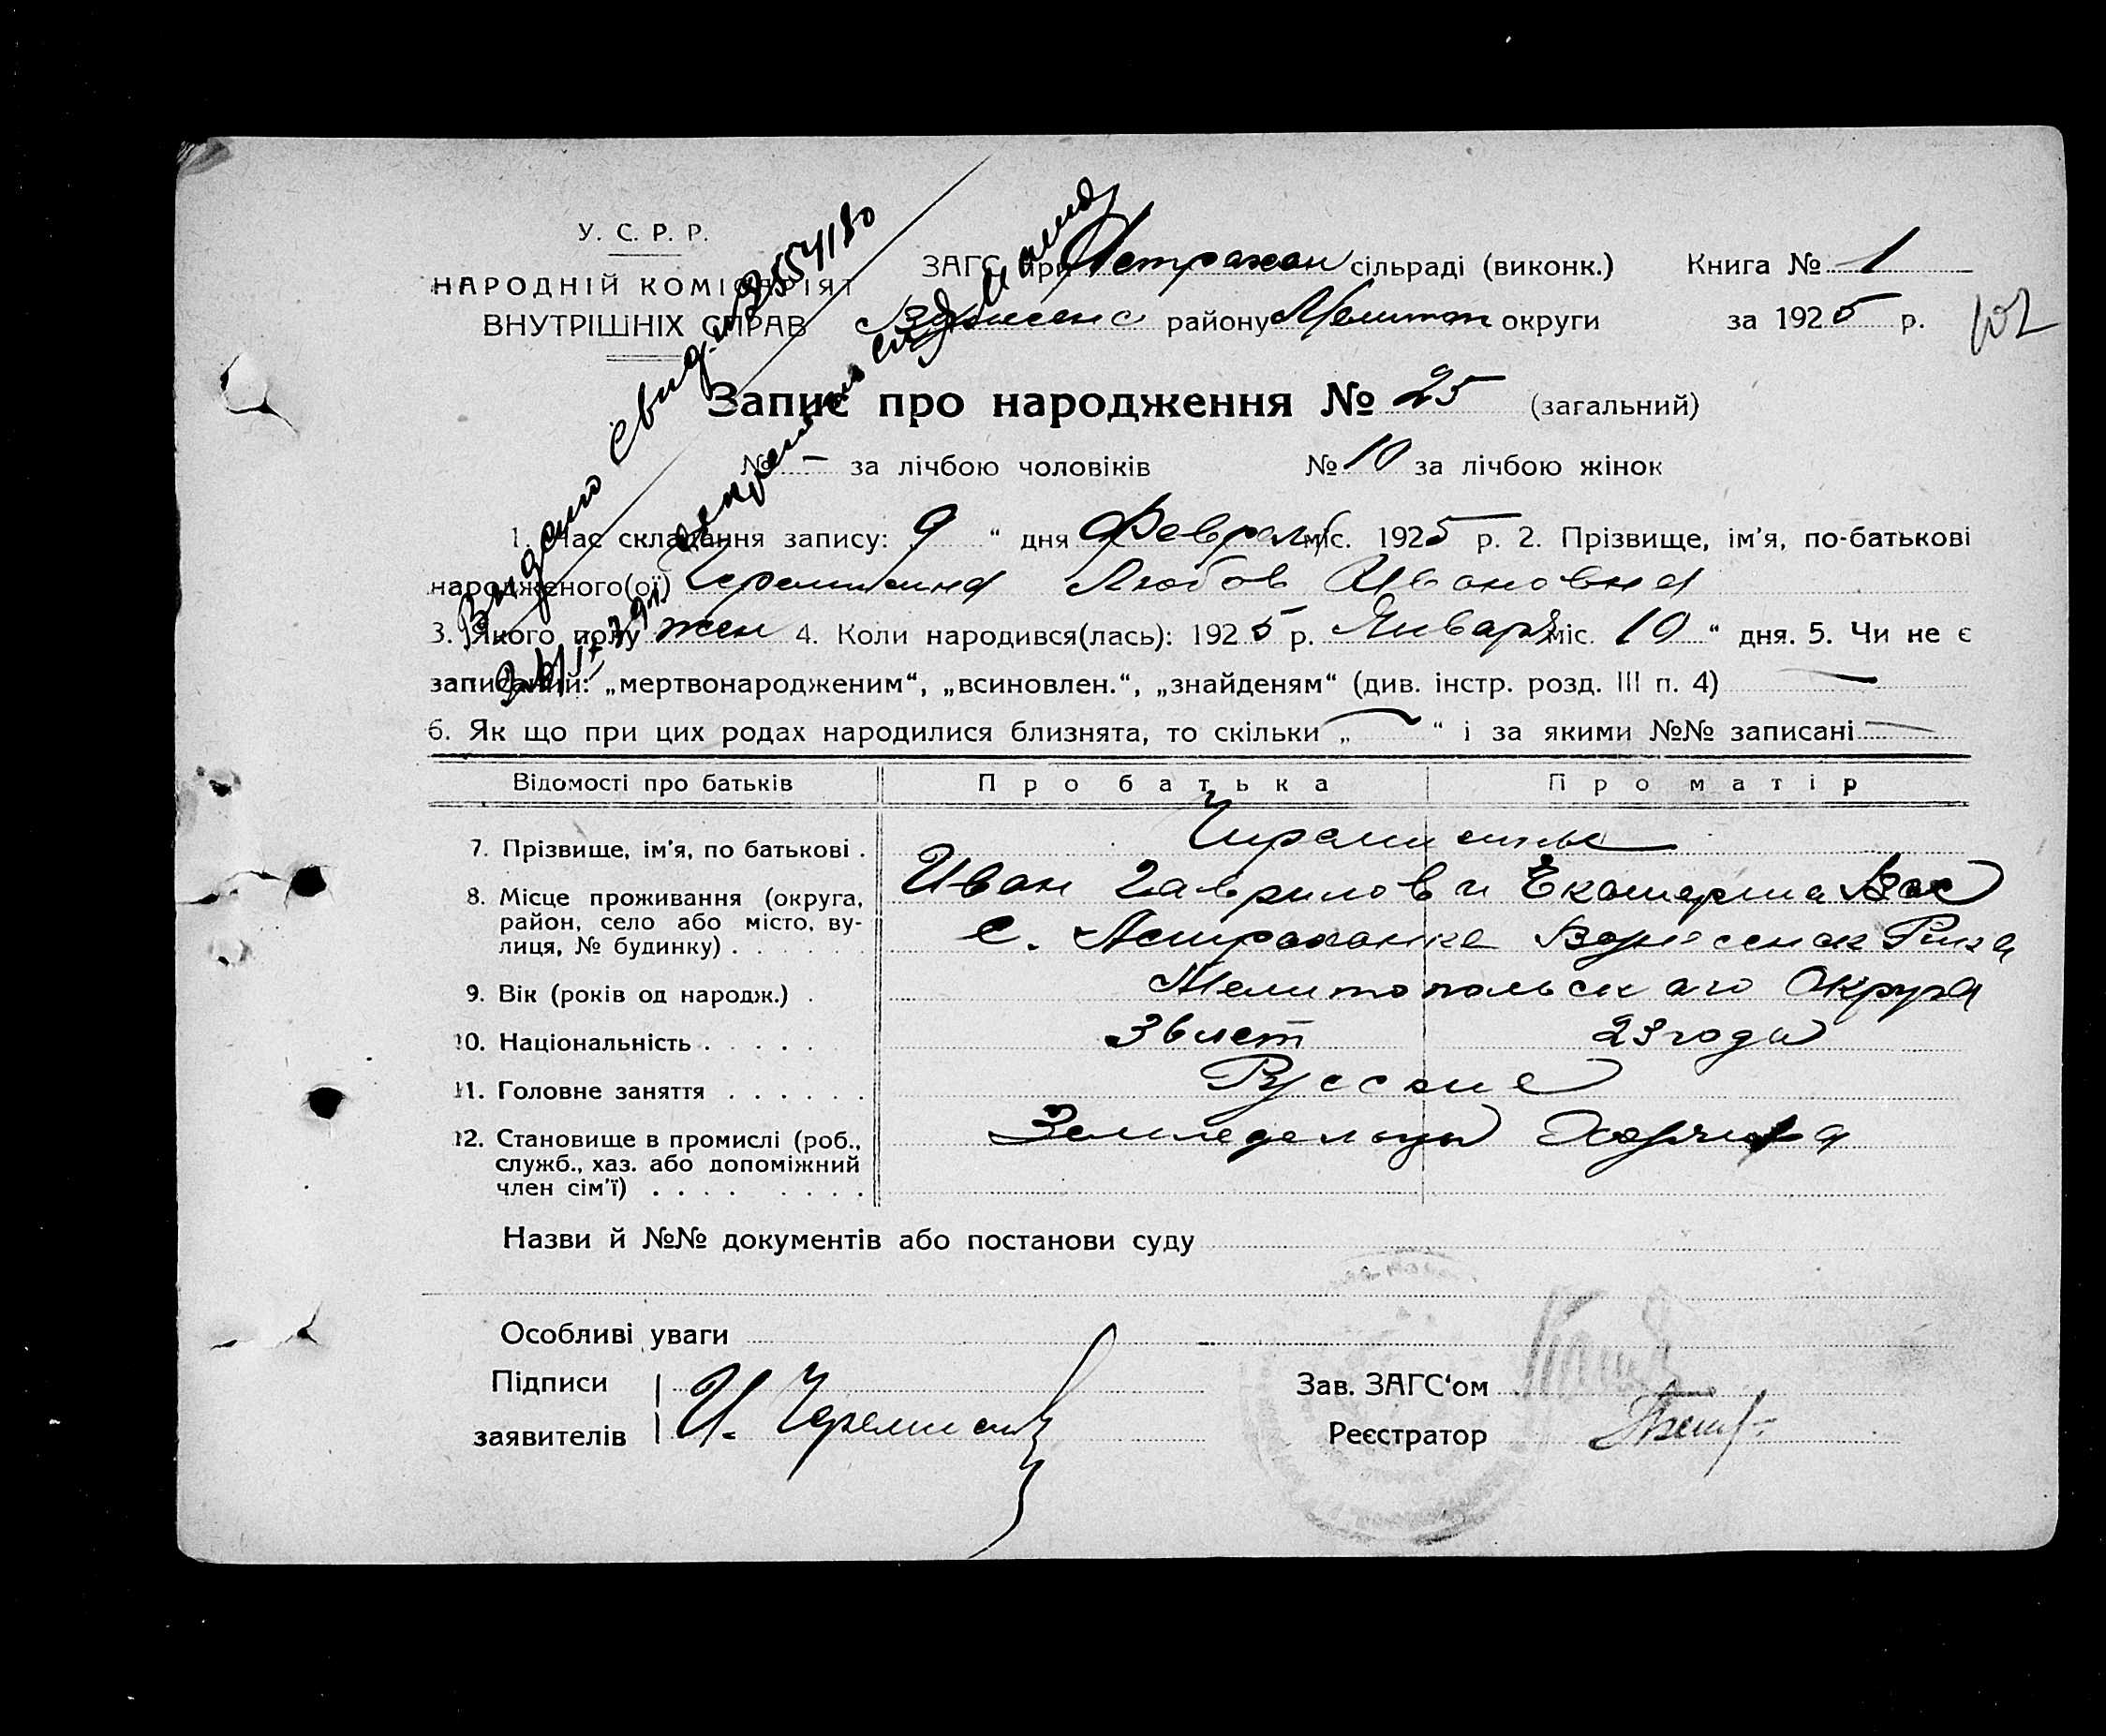 У. С. Р. Р.
НАРОДНІЙ КОМІСАРІЯТ
ВНУТРІШНІХ СПРАВ
ЗАГС при Астрахан сільраді (виконк.) Книга № 1
району Мелитоп округи за 1925 р.
102
Запис про народження № 25 (загальний)
№ – за лічбою чоловіків № 10 за лічбою жінок
1. Час складання запису: 9 “ дня Февраль міс. 1925 р. 2. Прізвище, ім'я, по-батькові
народженого(ої) Любов Ивановна
3. Якого полу жен 4. Коли народився(лась): 1925 р. Января міс. 10 “ дня. 5. Чи не є
записаний: „мертвонародженим“, „всиновлен.“, „знайденям“ (див. інстр. розд. III п. 4) —
6. Як що при цих родах народилися близнята, то скільки „ — “ і за якими №№ записані —
Выдано свид. 3554180
Відомості про батьків Про батька Про матір
7. Прізвище, ім'я, по батькові .
8. Місце проживання (округа,
район, село або місто, ву-
лиця, № будинку) . . . . .
9. Вік (років од народж.) .
10. Національність . . . . .
11. Головне заняття . . . . . .
12. Становище в промислі (роб.,
служб., хаз. або допоміжний
член сім'ї) . . . . . . . .
Иван Гаврилов и Екатерина Вас
с. Астраханка Вознесенск Р-на
Мелитопольскаго Округа
36 лет 23 года
Русские
Земледельцы
Назви й №№ документів або постанови суду
Особливі уваги
Підписи
заявителів И. Черемисин
Зав. ЗАГС'ом
Реєстратор